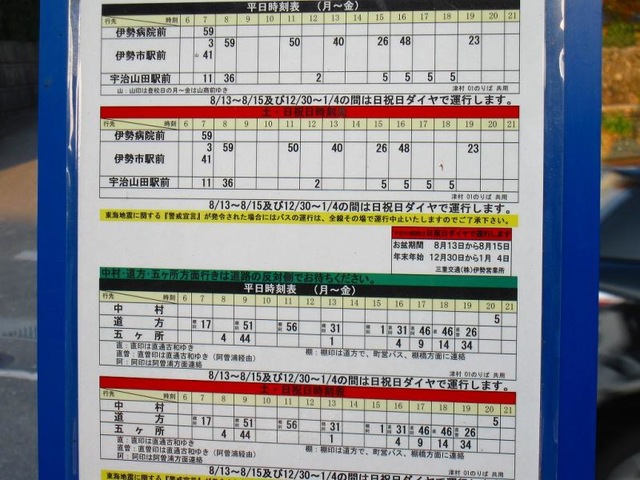 平日時刻表 (月～金)
行先 時刻 6 7 8 9 10 11 12 13 14 15 16 17 18 19 20 21
伊勢病院前 59
伊勢市駅前 3 59 50 40 26 48 23
山 41
宇治山田駅前 11 36 2 5 5 5 5
山：山印は登校日の月～金は山商前ゆき 津村 01のりば 共用
8/13～8/15及び12/30～1/4の間は日祝日ダイヤで運行します。
土・日祝日時刻表
行先 時刻 6 7 8 9 10 11 12 13 14 15 16 17 18 19 20 21
伊勢病院前 59
伊勢市駅前 3 59 50 40 26 48 23
41
宇治山田駅前 11 36 2 5 5 5 5
津村 01のりば 共用
8/13～8/15及び12/30～1/4の間は日祝日ダイヤで運行します。
東海地震に関する『警戒宣言』が発令された場合にはバスの運行は、全線その場で運行中止いたしますのでご了承下さい。
お盆期間 8月13日から8月15日
年末年始 12月30日から1月 4日
三重交通(株)伊勢営業所
中村・道方・五ヶ所方面行きは道路の反対側でお待ちください。
平日時刻表 (月～金)
行先 時刻 6 7 8 9 10 11 12 13 14 15 16 17 18 19 20 21
中 村 5
道 方 17 51 56 31 1 31 46 46 26
五ヶ所 4 44 1 4 9 14 34
直：直印は直通古和ゆき 棚：棚印は道方で、町営バス、棚橋方面に連絡
直曽：直曽印は直通古和ゆき（阿曽浦経由）
阿：阿印は阿曽浦方面連絡 津村 01のりば 共用
8/13～8/15及び12/30～1/4の間は日祝日ダイヤで運行します。
土・日祝日時刻表
行先 時刻 6 7 8 9 10 11 12 13 14 15 16 17 18 19 20 21
中 村 5
道 方 17 51 56 31 1 31 46 46 26
五ヶ所 4 44 1 4 9 14 34
直：直印は直通古和ゆき 棚：棚印は道方で、町営バス、棚橋方面に連絡
直曽：直曽印は直通古和ゆき（阿曽浦経由）
阿：阿印は阿曽浦方面連絡 津村 01のりば 共用
8/13～8/15及び12/30～1/4の間は日祝日ダイヤで運行します。
東海地震に関する『警戒宣言』